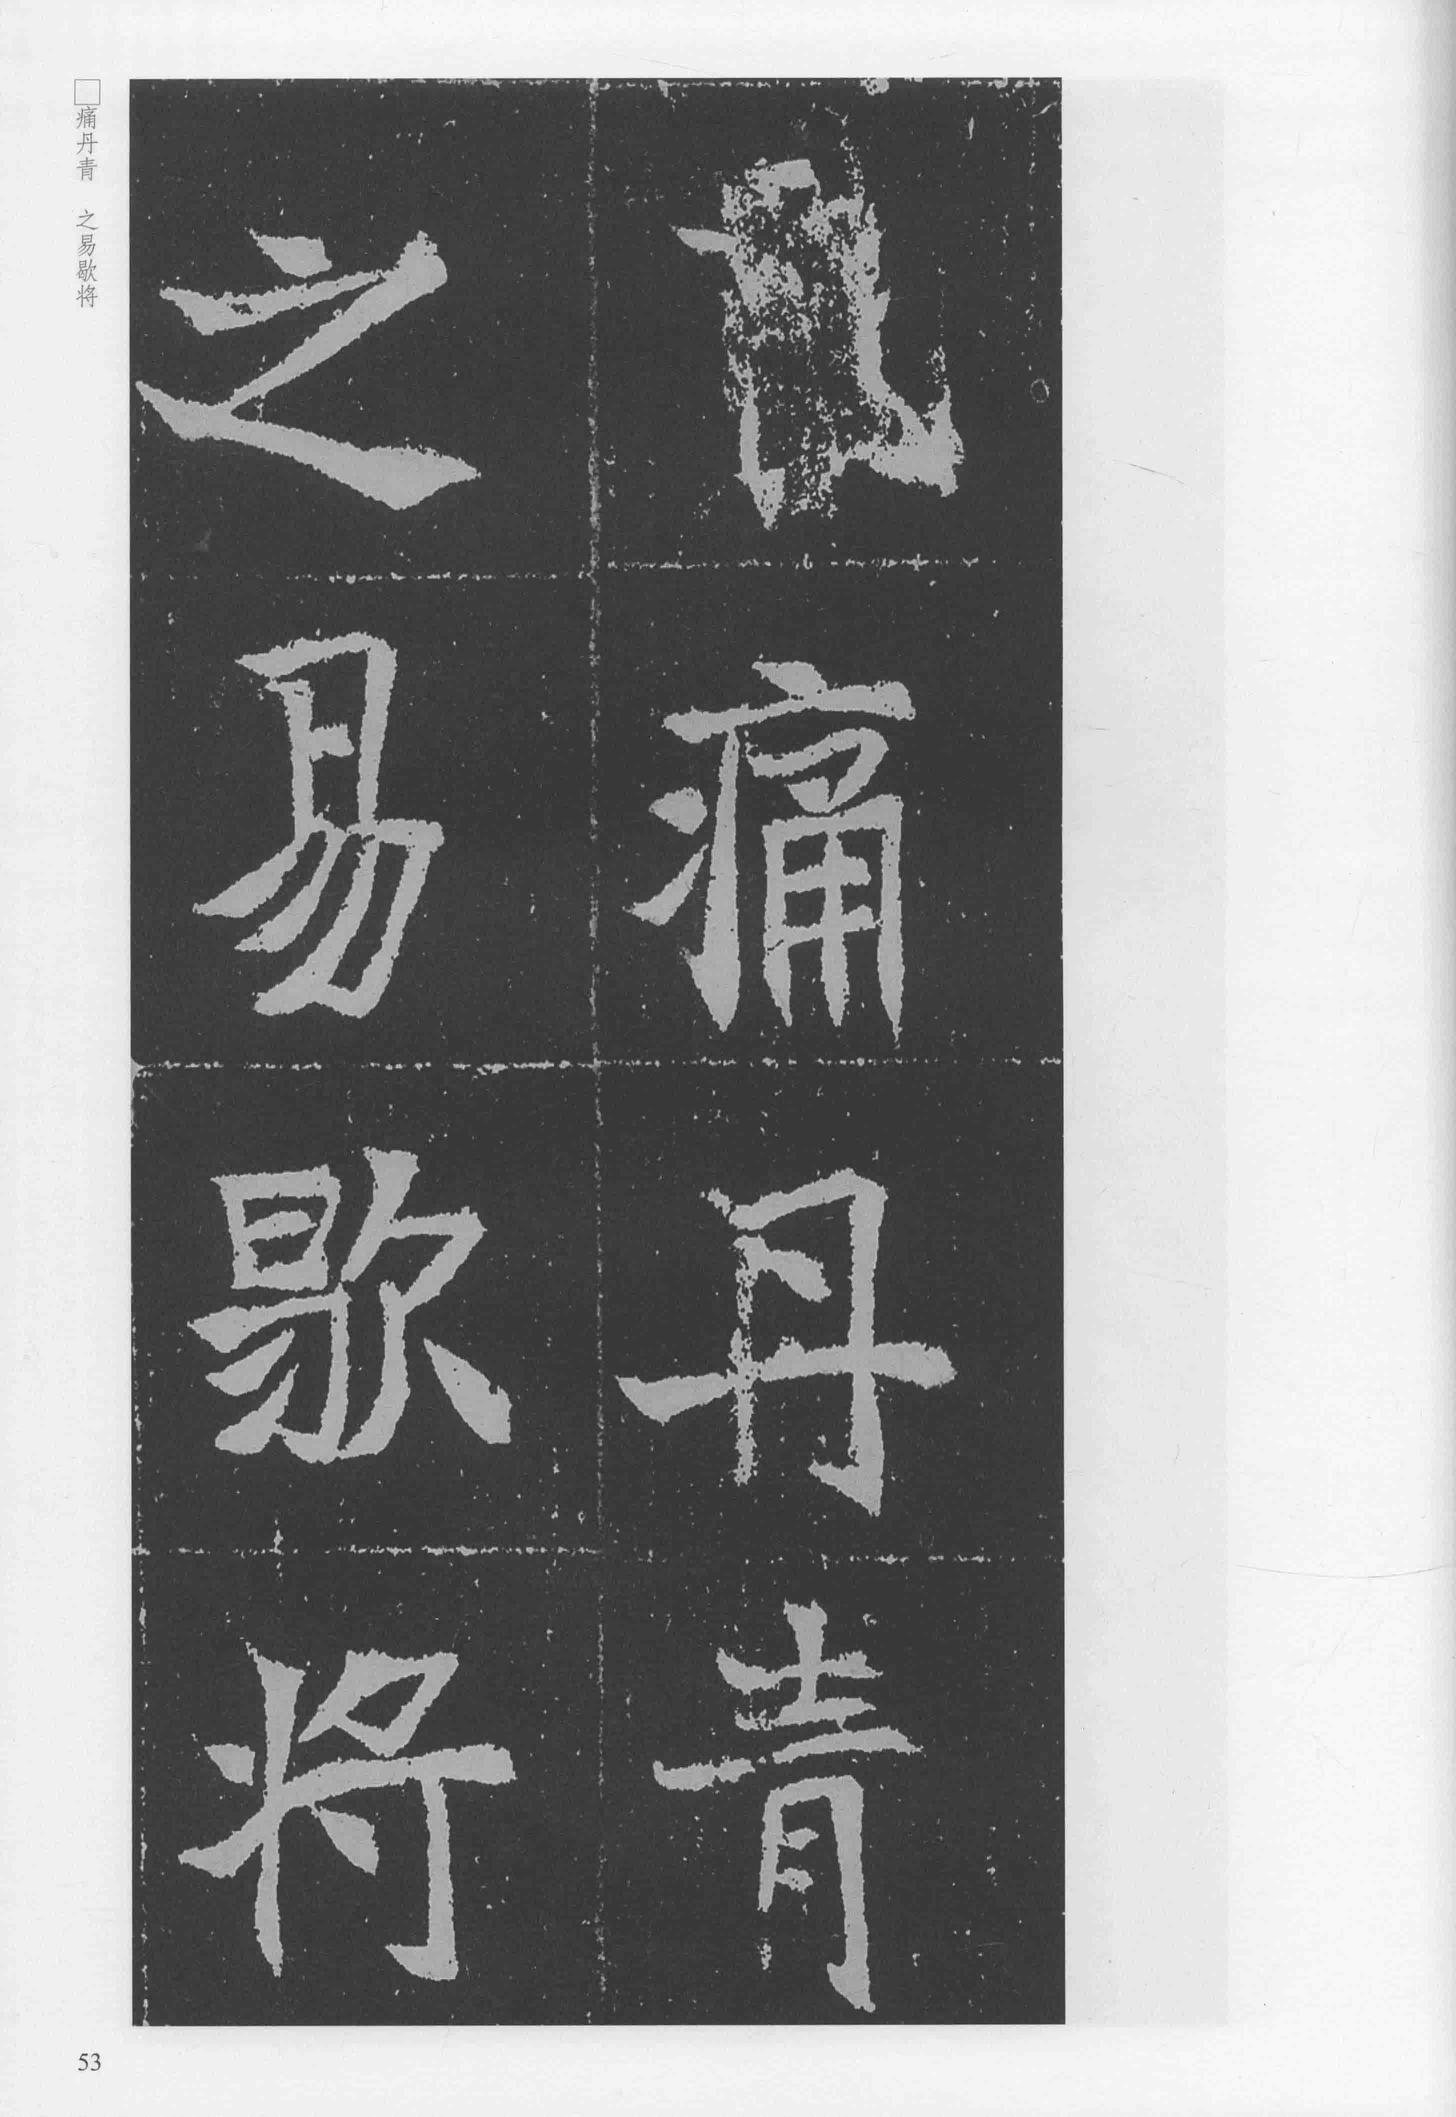 痛丹青
之易歇将
□痛丹青 之易歇将
53